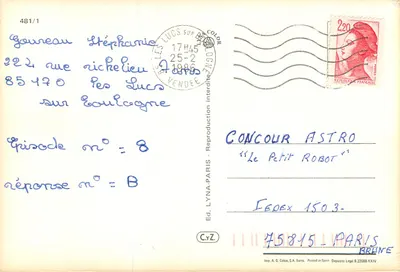 481/1
Goureau Stéphanie
224 rue richelieu
85170 les Lucs
sur Boulogne
Episode n° = 8
réponse n° = B
Ed. LYNA-PARIS - Reproduction interdite
COLOR
LES LUCS SUR BOULOGNE
17H45
25-2
1986
VENDEE
2,20
CONCOUR ASTRO
"Le Petit Robot"
CEDEX 1503.
75815 - PARIS
BRUNE